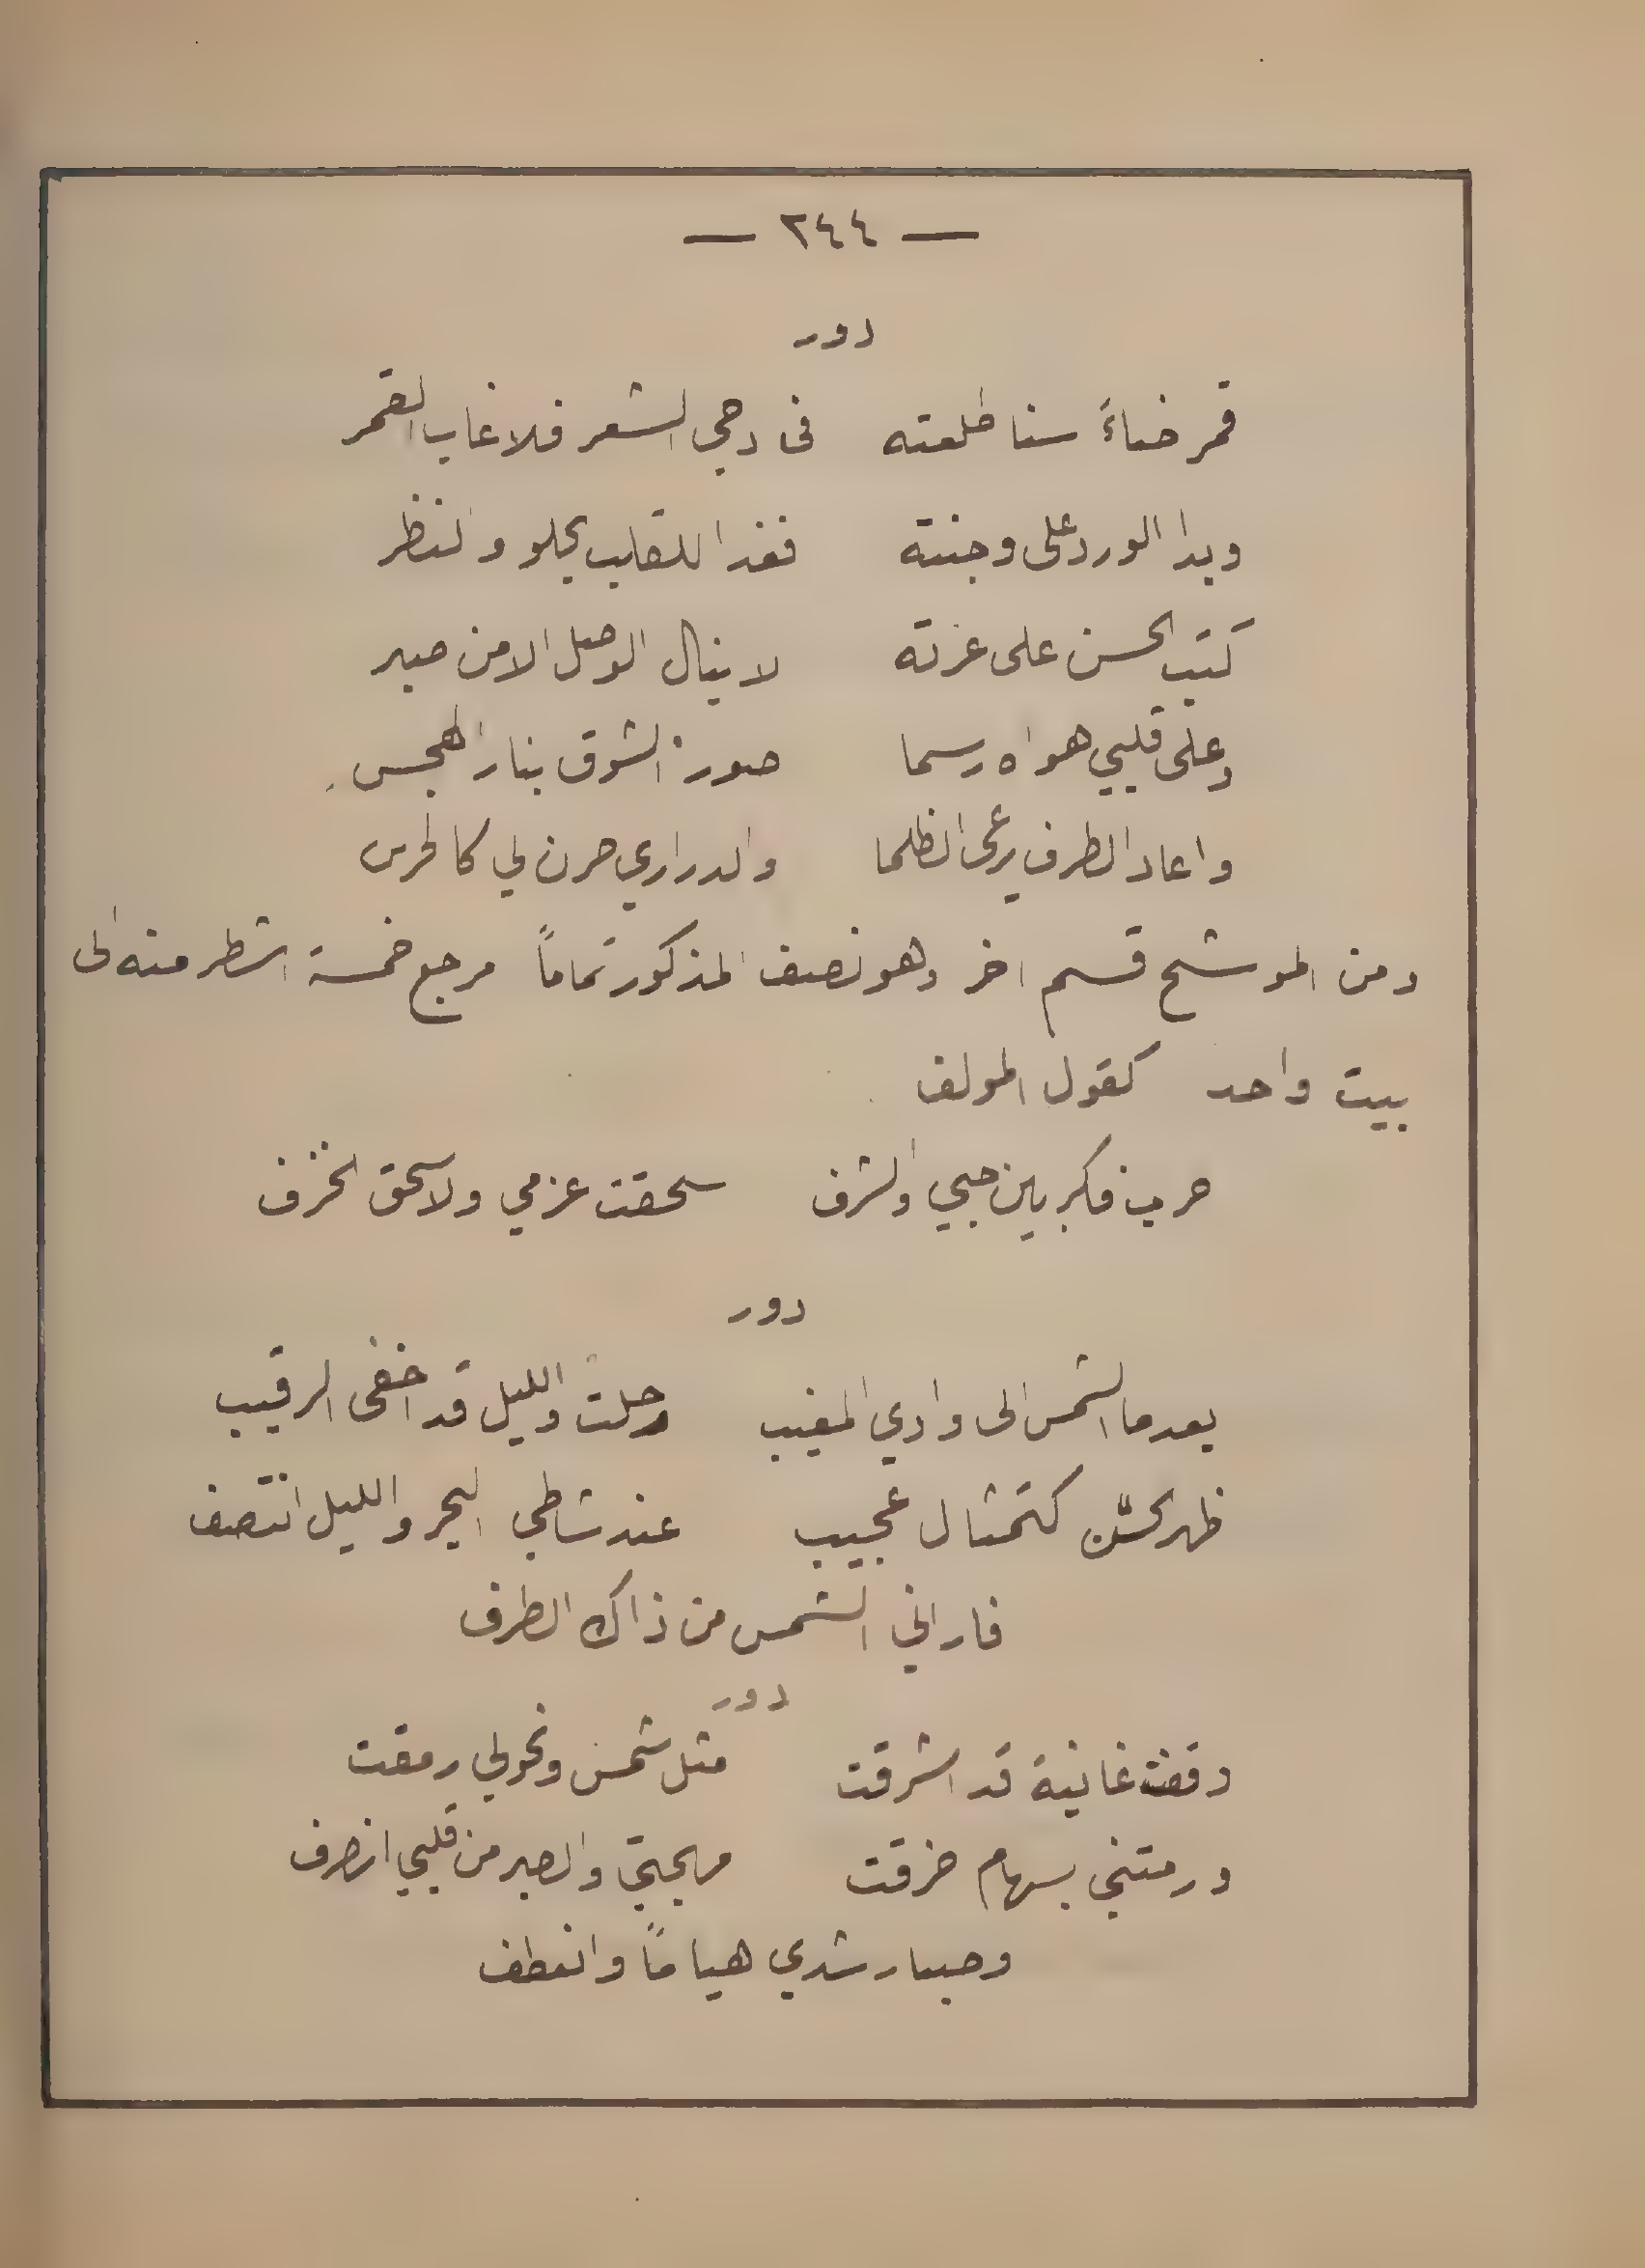 — ٢٤٤ —
دور
قمر ضاءَ سنا طلعته في دجى الشعر فلا غاب القمر
وبدا الورد على وجنته فغدا للقلب يحلو والنظر
كتب الحسن على غرته لا ينال الوصل الا من صبر
وعلى قلبي هواه رسما صورة الشوق بنار الهجس
واعاد الطرف يرعى الظلما والدراري صرن لي كالحرس
ومن الموشح قسم اخر وهو نصف المذكور تماماً مرجع خمسة اشطر منه الى
بيت واحد كقول المولف
حرب فكر بين حبي والشرف سحقت عزمي ولا سحق الخزف
دور
بعدما الشمس الى وادي المغيب رحلت والليل قد اخفى الرقيب
ظهر الحسّن كتمثال عجيب عند شاطي البحر والليل انتصف
فاراني الشمس من ذاك الطرف
دور
وقفت غانية قد اشرقت مثل شمس ونحولي رمقت
ورمتني بسهام خرقت مهجتي والصبر من قلبي انصرف
وصبا رشدي هياماً وانعطف